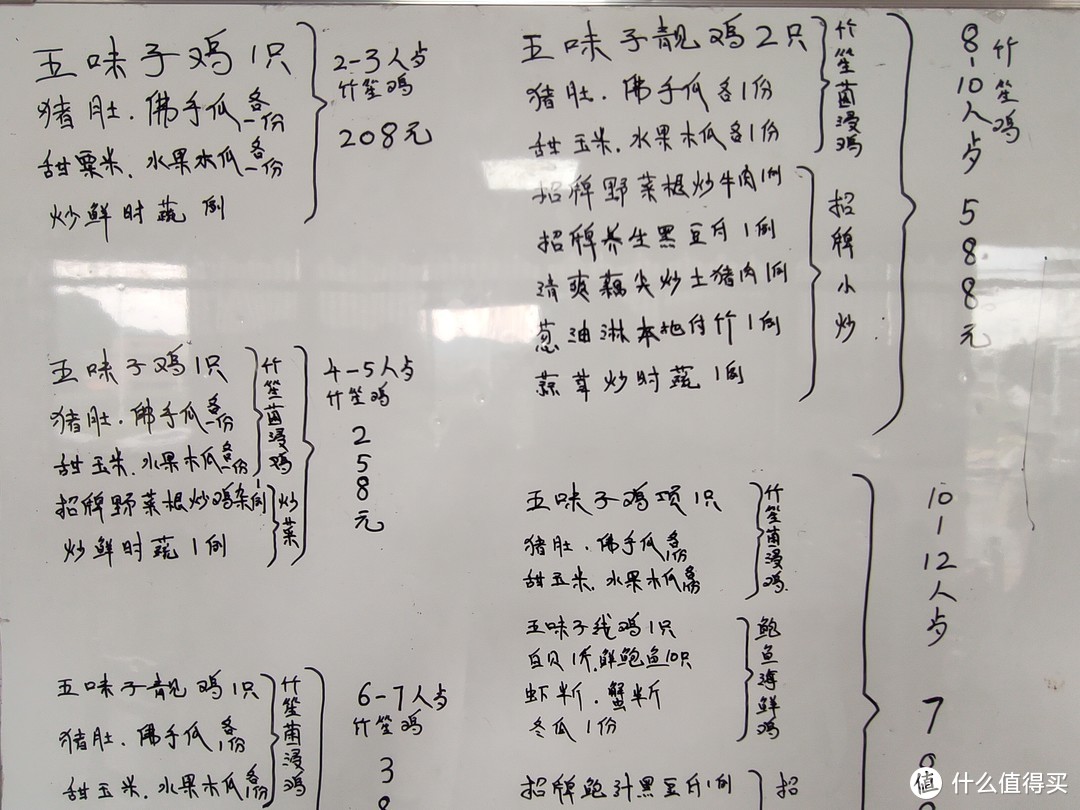 五味子鸡1只
猪肚.佛手瓜各一份
甜粟米.水果木瓜各一份
炒鲜时蔬 例
2-3人卢
竹笙鸡
208元
五味子鸡1只
猪肚.佛手瓜各一份
甜玉米.水果木瓜各一份
竹笙菌浸鸡
招牌野菜根炒鸡杂1例
炒鲜时蔬1例
炒菜
4-5人卢
竹笙鸡
258元
五味子靓鸡1只
猪肚.佛手瓜各1份
甜玉米.水果木瓜各1份
竹笙菌浸鸡
6-7人卢
竹笙鸡
3
五味子靓鸡2只
猪肚.佛手瓜各1份
甜玉米.水果木瓜各1份
竹笙菌浸鸡
招牌野菜根炒牛肉1例
招牌养生黑豆卜1例
清爽藕尖炒土猪肉1例
葱油淋本地付竹1例
蒜茸炒时蔬1例
招牌小炒
8-10人卢
588元
竹笙鸡
五味子鸡项1只
猪肚.佛手瓜各1份
甜玉米.水果木瓜各1份
竹笙菌浸鸡
五味子线鸡1只
白贝1斤,鲜鲍鱼10只
虾半斤.蟹半斤
冬瓜1份
鲍鱼海鲜鸡
招牌鲍汁黑豆卜1例
招
10-12人卢
7
值 什么值得买